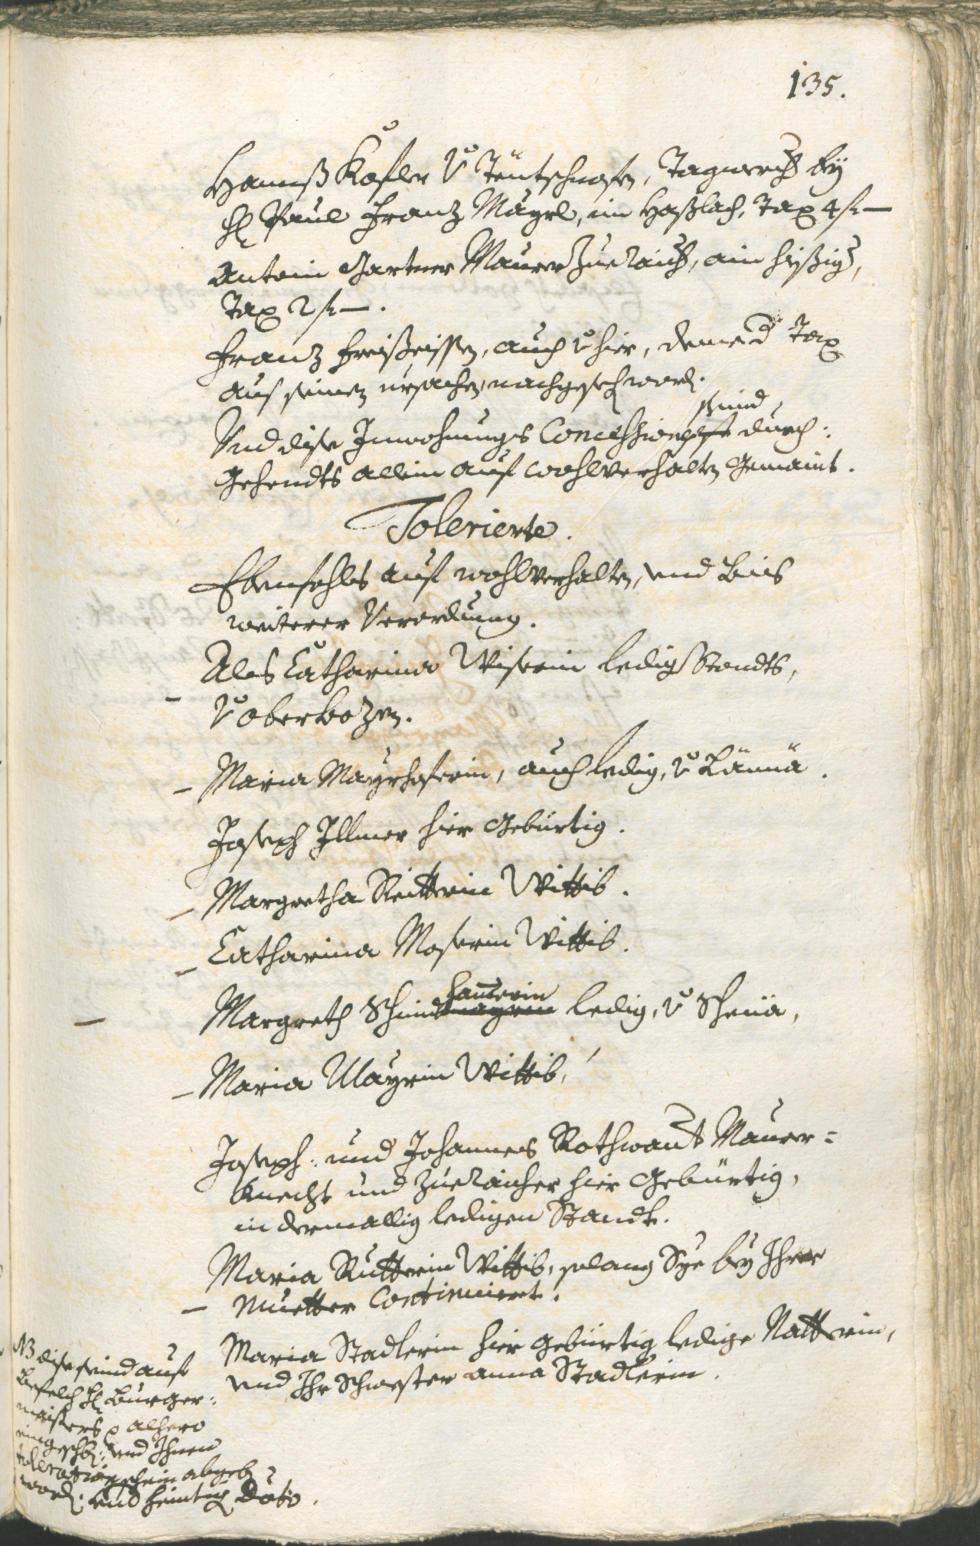 135.
Hannß Kofler v Teütschnofen, Tagwerch: bey
H: Paul Franz Mayrl, im Haßlach, Tax 4 f —
Antoni Gartner Maurer Zuelaich, ain hießig,
Tax 2 f —.
Franz Freißeissen, auch v hier, deme d Tax
aus seinen ursachen nachgesehen word.
Und dise Inwohnungs Concessionen seind durch:
gehendts allein auf wohlverhalten Gemaint.
Tolerierte.
Ebenfahls auf wohlverhalten, und bis
weiterer Verordnung.
Als Catharina Wiserin ledig Standts,
v oberbozen.
– Maria Mayrhoferin, auch ledig, v Lännä.
Joseph Illmer hier Gebürtig.
– Margretha Reitterin Wittib.
– Catharina Moserin Wittib.
– Margreth Schmid hauserin ledig, v Schenä,
– Maria Mayrin Wittib,
Joseph: und Johannes Rothwant Maurer=
knecht und Zuelaicher hier Gebürtig,
in dermallig ledigen Standt.
Maria Rutterin Wittib, solang Sye bey Ihrer
– Muetter Continuiert.
Maria Stadlerin hier gebürtig ledige Natterin,
und Ihr Schwester anna Stadlerin.
NB dise seind auf
Befelch H: Burger:
maisters p alhero
eingeschr: und Ihnen
tolerationschein abgeb
word: sub heintig Dato.